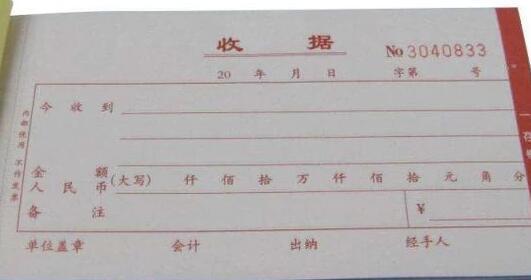 收 据
No 3040833
20 年 月 日 字第 号
今 收 到
金 额
人 民 币 (大写) 仟 佰 拾 万 仟 佰 拾 元 角 分
备 注 ¥
单位盖章 会计 出纳 经手人
内部使用 不作发票
一
存